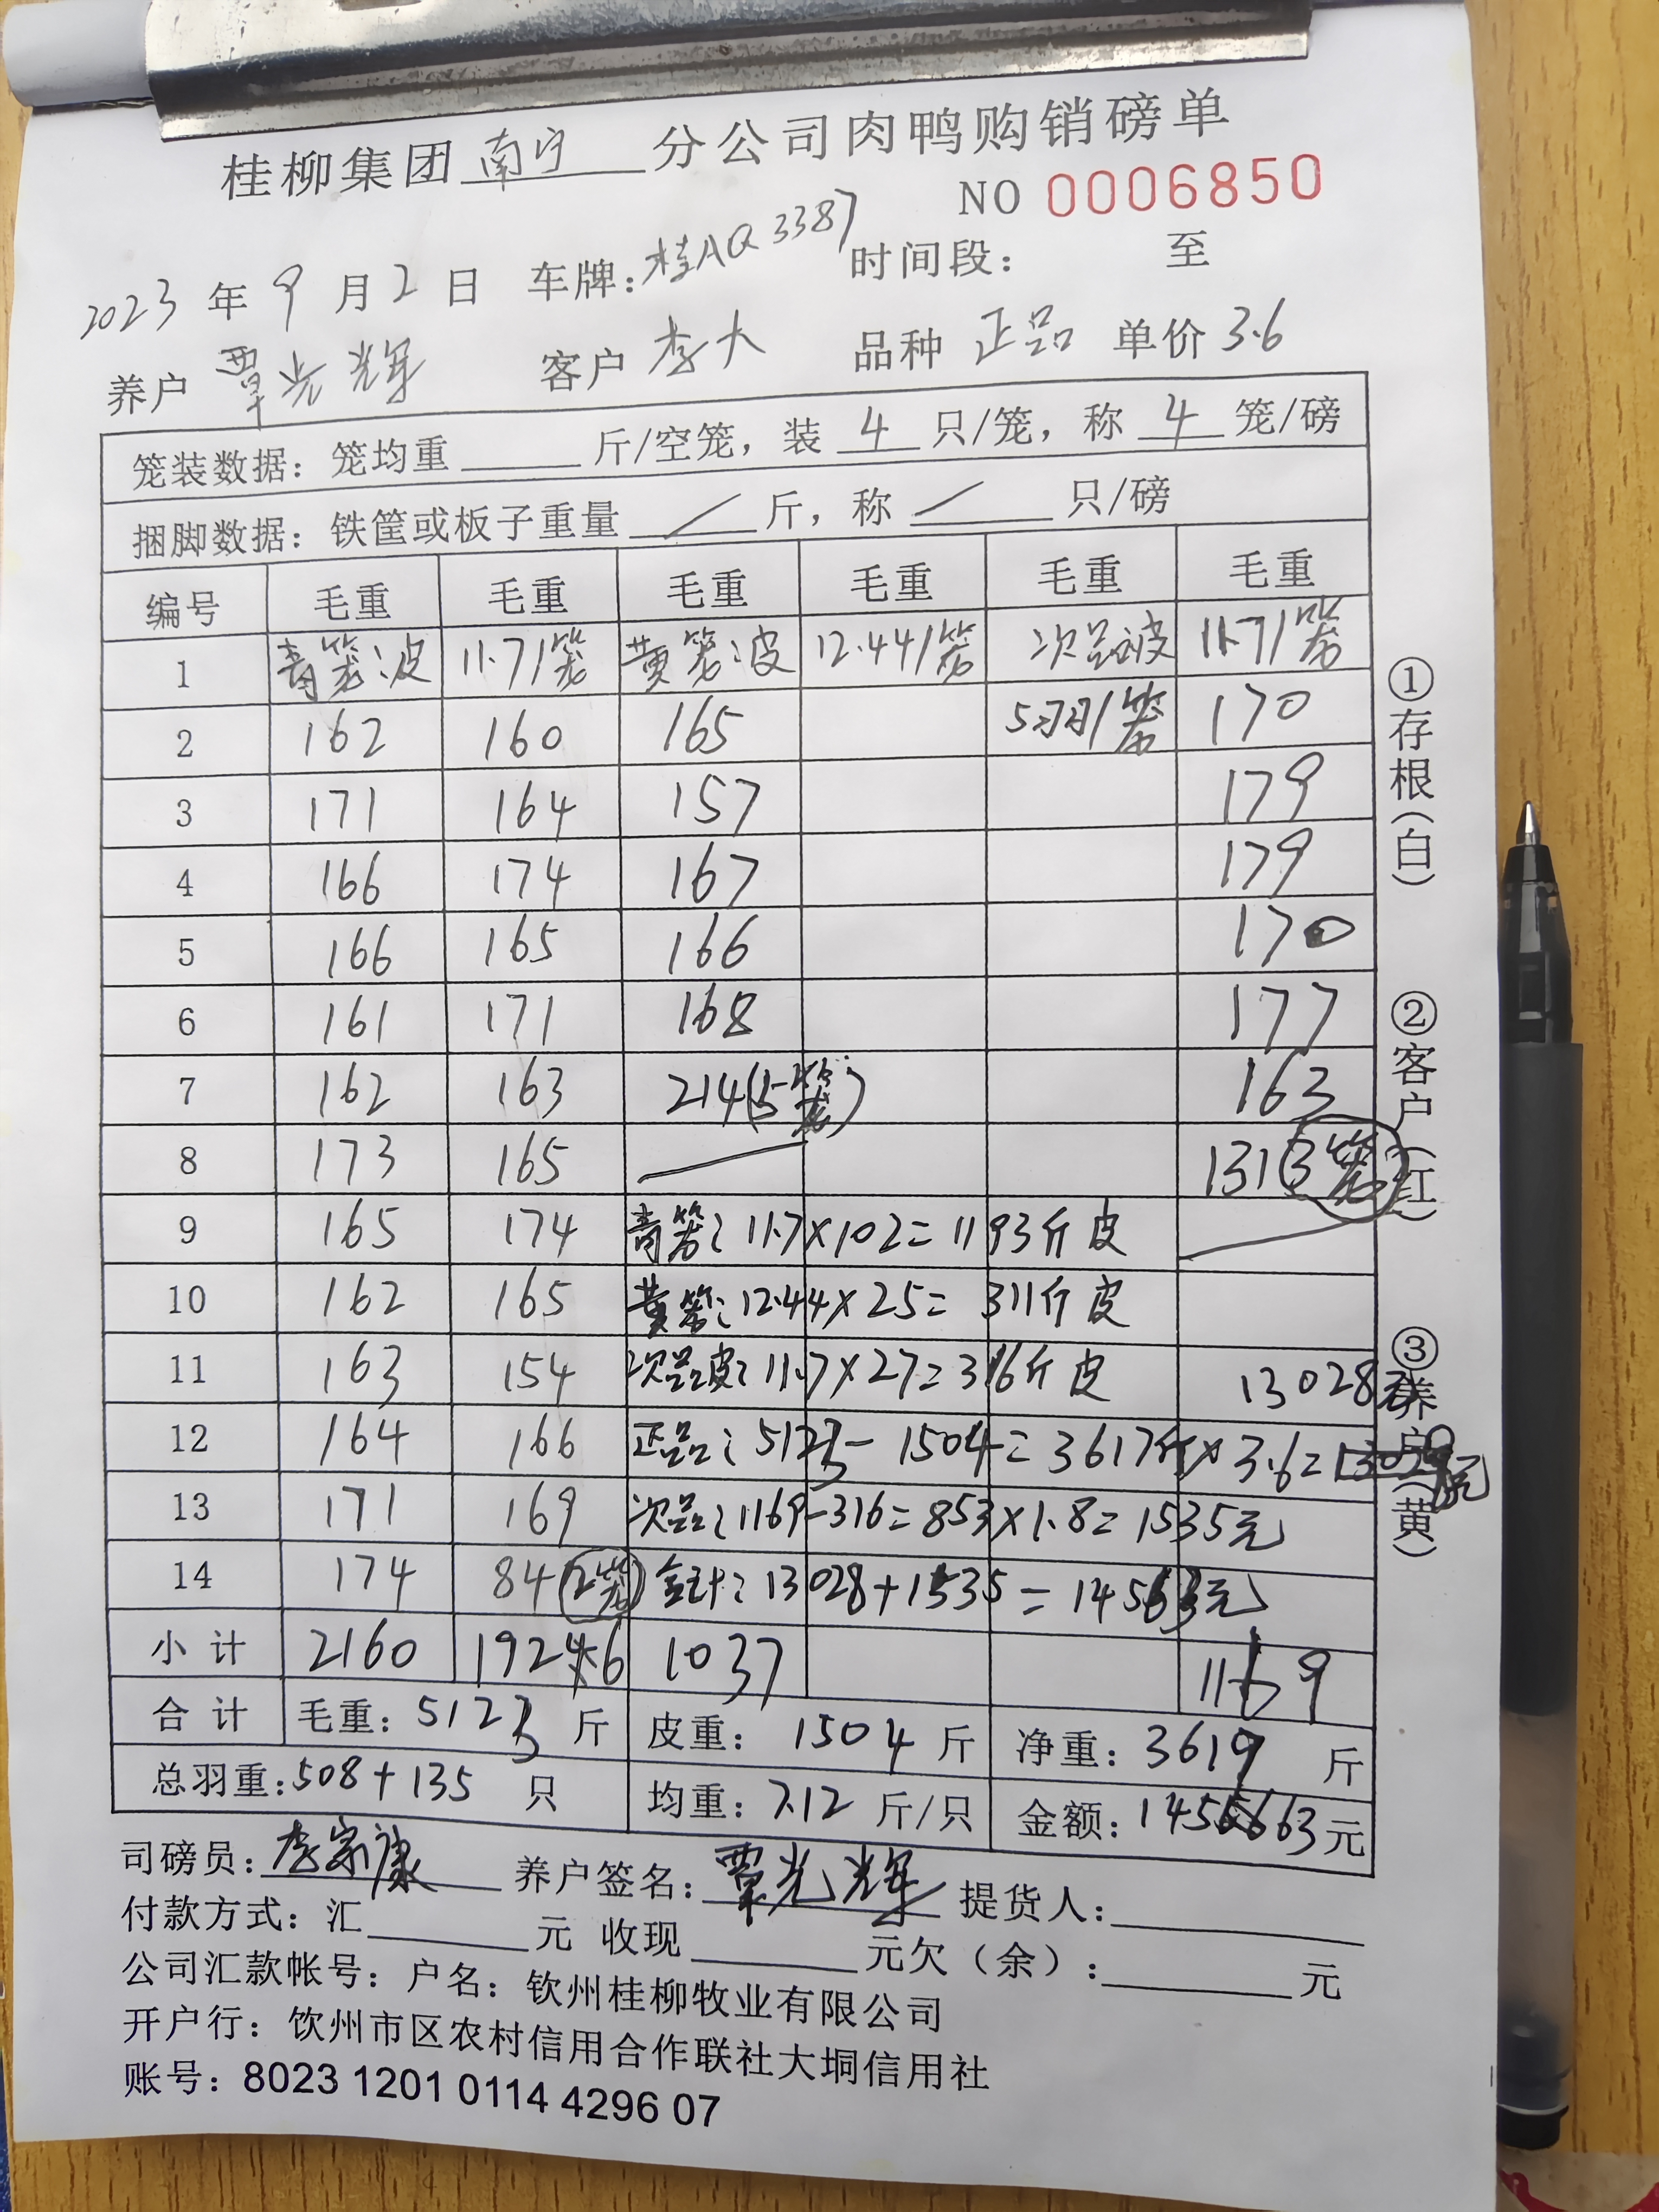 桂柳集团 南宁 分公司肉鸭购销磅单
NO 0006850
2023 年 9 月 2 日 车牌: 桂AQ3387 时间段: 至
养户 覃光辉 客户 李大 品种 正品 单价 3.6
笼装数据: 笼均重 斤/空笼, 装 4 只/笼, 称 4 笼/磅
捆脚数据: 铁筐或板子重量 / 斤, 称 / 只/磅
编号 毛重 毛重 毛重 毛重 毛重 毛重
1 青笼:皮 11.7/笼 黄笼:皮 12.44/笼 次品皮 11.7/笼
2 162 160 165 5羽/笼 170
3 171 164 157 179
4 166 174 167 179
5 166 165 166 170
6 161 171 168 177
7 162 163 214(5笼) 163
8 173 165 131(3笼)
9 165 174 青笼: 11.7×102=1193斤皮
10 162 165 黄笼: 12.44×25=311斤皮
11 163 154 次品皮: 11.7×27=316斤皮 13028元
12 164 166 正品: 5123-1504=3617斤×3.6=
13 171 169 次品: 1169-316=853×1.8=1535元
14 174 84(2笼) 合计: 13028+1535=14563元
小计 2160 1037 1169
合计 毛重: 5123 斤 皮重: 1504 斤 净重: 3619 斤
总羽重: 508+135 只 均重: 7.12 斤/只 金额: 元
司磅员: 李宗康 养户签名: 覃光辉 提货人:
付款方式: 汇 元 收现 元欠(余): 元
公司汇款帐号: 户名: 钦州桂柳牧业有限公司
开户行: 饮州市区农村信用合作联社大垌信用社
账号: 8023 1201 0114 4296 07
①存根(白)
②客户(红)
③养户(黄)